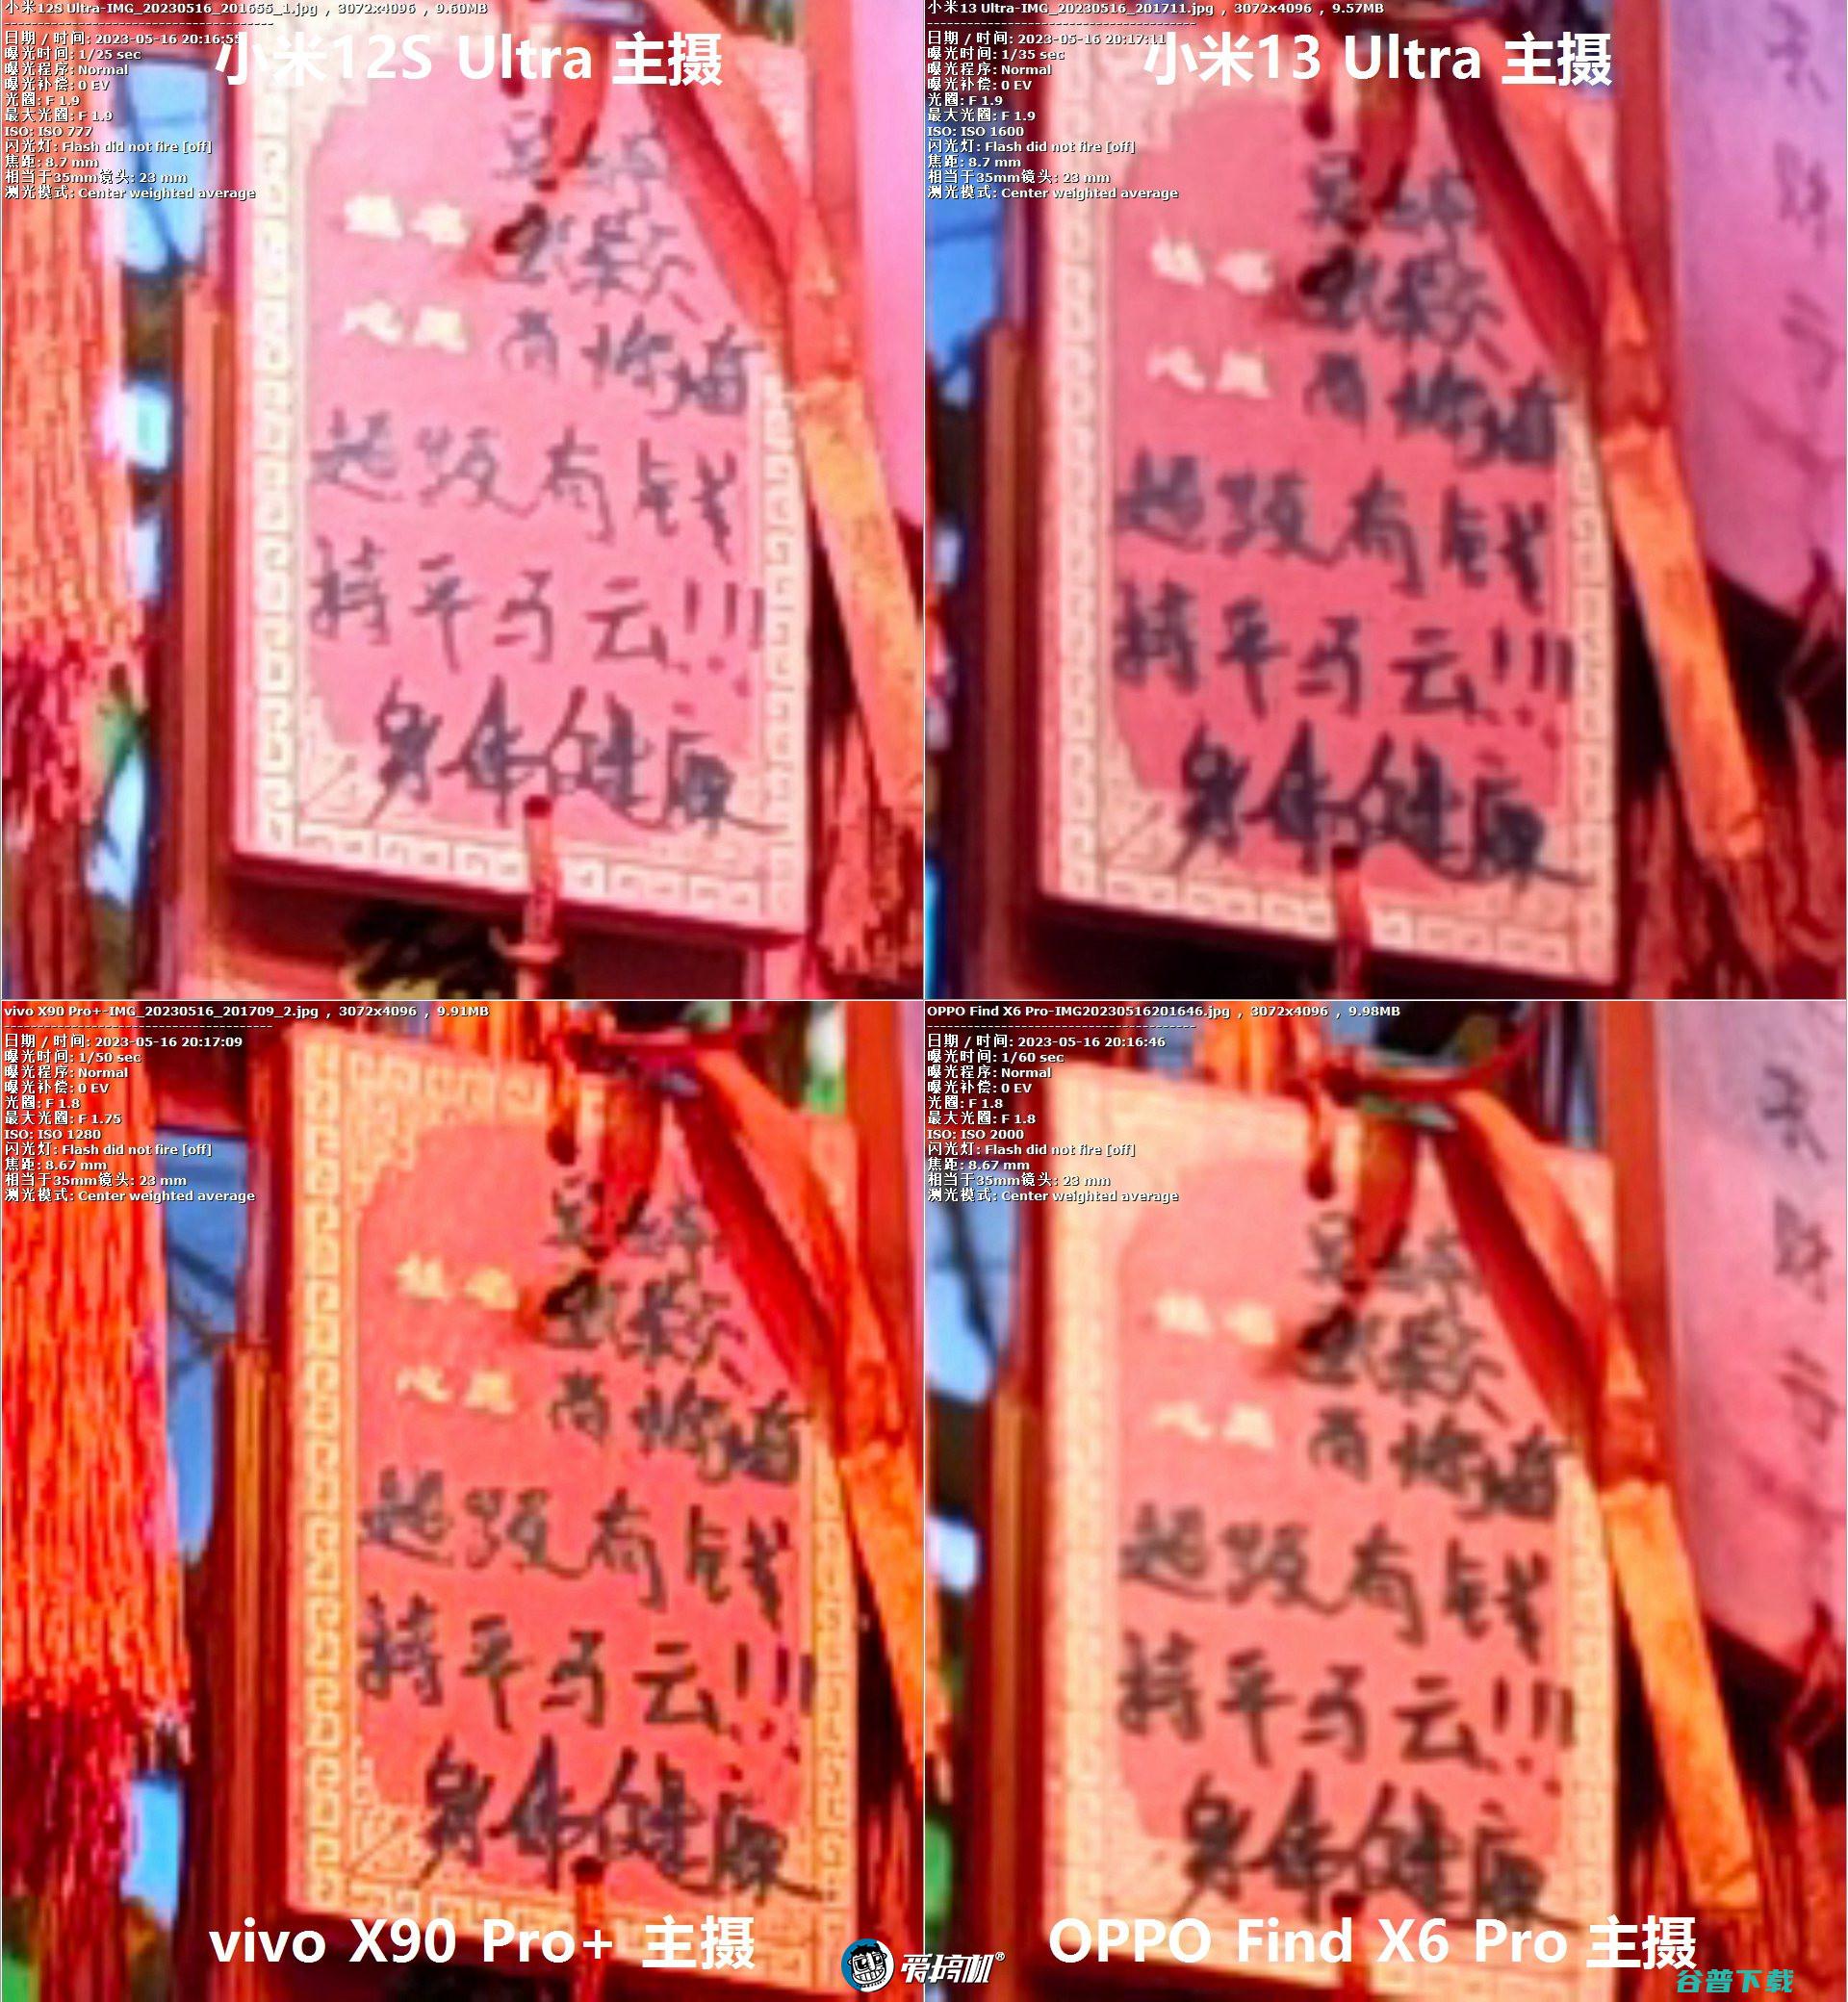 小米12S Ultra-IMG_20230516_201655_1.jpg , 3072x4096 , 9.60MB
日期 / 时间: 2023-05-16 20:16:55
曝光时间: 1/25 sec
曝光程序: Normal
曝光补偿: 0 EV
光圈: F 1.9
最大光圈: F 1.9
ISO: ISO 777
闪光灯: Flash did not fire [off]
焦距: 8.7 mm
相当于35mm镜头: 23 mm
测光模式: Center weighted average
小米12S Ultra 主摄
心愿
超级有钱
持平马云!!!
身体健康
小米13 Ultra-IMG_20230516_201711.jpg , 3072x4096 , 9.57MB
日期 / 时间: 2023-05-16 20:17:11
曝光时间: 1/35 sec
曝光程序: Normal
曝光补偿: 0 EV
光圈: F 1.9
最大光圈: F 1.9
ISO: ISO 1600
闪光灯: Flash did not fire [off]
焦距: 8.7 mm
相当于35mm镜头: 23 mm
测光模式: Center weighted average
小米13 Ultra 主摄
心愿
超级有钱
持平马云!!!
身体健康
vivo X90 Pro+-IMG_20230516_201709_2.jpg , 3072x4096 , 9.91MB
日期 / 时间: 2023-05-16 20:17:09
曝光时间: 1/50 sec
曝光程序: Normal
曝光补偿: 0 EV
光圈: F 1.8
最大光圈: F 1.75
ISO: ISO 1280
闪光灯: Flash did not fire [off]
焦距: 8.67 mm
相当于35mm镜头: 23 mm
测光模式: Center weighted average
心愿
超级有钱
持平马云!!!
身体健康
vivo X90 Pro+ 主摄
OPPO Find X6 Pro-IMG20230516201646.jpg , 3072x4096 , 9.98MB
日期 / 时间: 2023-05-16 20:16:46
曝光时间: 1/60 sec
曝光程序: Normal
曝光补偿: 0 EV
光圈: F 1.8
最大光圈: F 1.8
ISO: ISO 2000
闪光灯: Flash did not fire [off]
焦距: 8.67 mm
相当于35mm镜头: 23 mm
测光模式: Center weighted average
心愿
超级有钱
持平马云!!!
身体健康
OPPO Find X6 Pro 主摄
爱搞机®
谷普下载